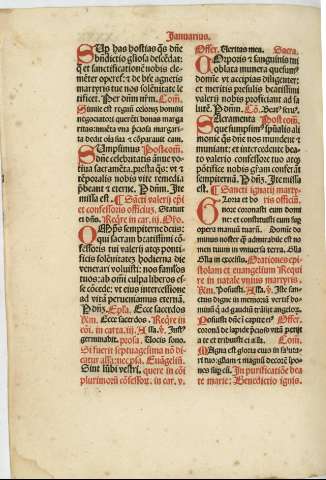 Januarius.
Sup has hostias q̄s dn̄e
bn̄dictio gliosa descēdat:
q̄ et sanctificationē nobis cle-
mēter operef: ⁊ de bt̄e agnetis
martyris tue nos solēnitate le-
tificet. Per dn̄m nr̄m. Com̄.
Simile est regnū celorū homini
negociatori querēti bonas marga
ritas: inuēta vna p̄ciosa margari-
ta dedit oīa sua ⁊ cōparauit eam.
Sumpsimus Postcom̄.
dn̄e celebritatis ānue vo
tiua sacramēta. presta q̄s: vt ⁊
tēporalis nobis vite remedia
p̄beant ⁊ eterne. P̄ dn̄m. Ite
missa est. ¶ Sācti valerij ep̄i
et confessoris officiuz. Statuit
ei dn̄s. Require in car. iij. Oro.
Omp̄s sempiterne deus:
qui sacram beatissimi cō-
fessoris tui valerij atq̄ ponti-
ficis solēnitatez hodierna die
venerari voluisti: nos famłos
tuos: ab oīni culpa liberos ef-
fice cōcede: vt eius intercessione
ad vitā perueniamus eternā.
P̄ dn̄z. Epła. Ecce sacerdos
R̄m. Ecce sacerdos. Req̄re in
cōi. in carta. iij. Alla. ℣. Just⁹
germinabit. prosa. Vocis sono.
Si fuerit septuagesima nō di-
catur alla: nec p̄sa. Euāgeliū.
Sint lūbi vestri. quere in cōi
plurimorū cōfessor. in car. v.
Offer. Veritas mea. Sacra.
Corporis ⁊ sanguinis tui
oblata munera quesum⁹
domine vt accipias diligenter:
et meritis presulis beatissimi
valerij nobis proficiant ad sa-
lutē. P̄ dn̄z. Cō. Beat⁹ seru⁹.
Sacramenta Postcom̄.
que sumpsim⁹ sp̄ualis ali-
monie q̄s dn̄e nos mundent ⁊
muniant: et intercedente bea-
to valerio confessore tuo atq̄
pōtifice nobis gram conferāt
sempiternā. P̄ dn̄z. Ite missa
est. ¶ Sancti ignatij marty-
Gloria et do ris officiū.
nore coronasti eum domi
ne: et constituisti eum sup
opera manuū tuarū. Domine do
minus noster q̄ admirabile est no
men tuum in vniuersa terra. Alla
Alla in excelsis. Orationes epi-
stolam et euangelium Requi
re in natale vnius martyris.
R̄m. Posuisti. Alla. ℣. Iste san-
ctus digne in memoriā vertif ho-
minū: q̄ ad gaudiū trāsijt angelor.
Posuisti dn̄e ī capite ei⁹ Offer.
coronā de lapide p̄cioso vitā petijt
a te et tribuisti ei alla. Com̄.
Magna est gloria eius in saluta
ri tuo: gliam ⁊ magnū decorē īpo-
nes sup eū. In purificatiōe bea
te marie: Benedictio ignis.